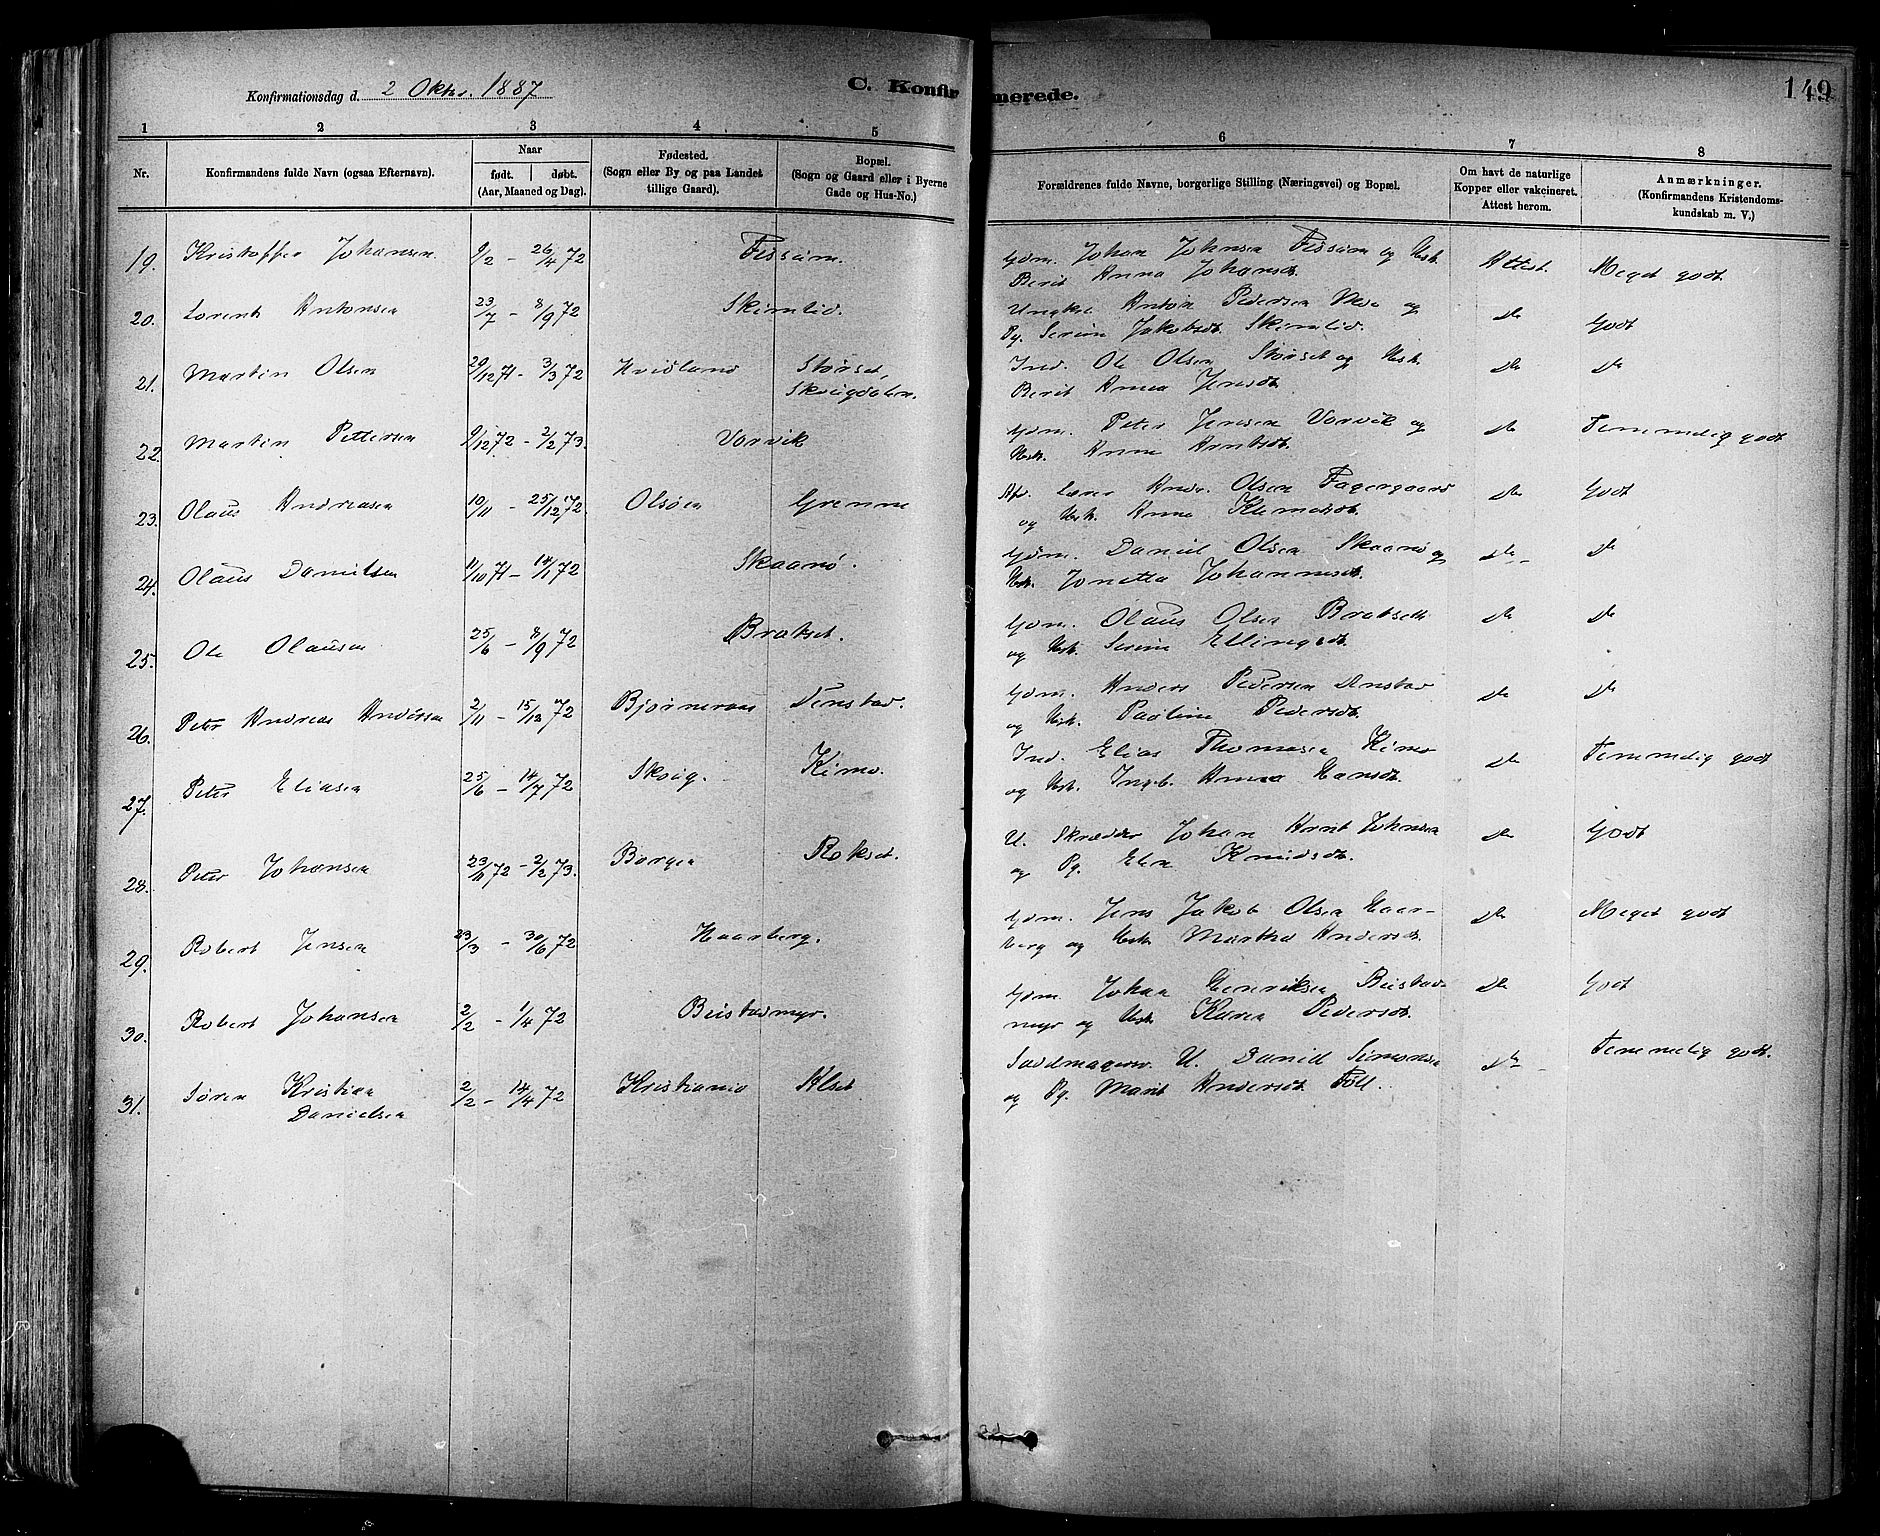 Konfirmationsdag d. 2 Oktbr. 1887 C. Konfirmerede. 149
1 2 3 4 5 6 7 8
Nr. Konfirmandens fulde Navn (ogsaa Efternavn). Naar født. døbt. (Aar, Maaned og Dag). Fødested. (Sogn eller By og paa Landet tillige Gaard). Bopæl. (Sogn og Gaard eller i Byerne Gade og Hus-No.) Forældrenes fulde Navne, borgerlige Stilling (Næringsvei) og Bopæl. Om havt de naturlige Kopper eller vakcineret. Attest herom. Anmærkninger. (Konfirmandens Kristendomskundskab m. V.)
19. Kristoffer Johansen 9/2 - 26/4 72 Fissum. Gdm. Johan Johnsen Fissum og Hst. Attest. Meget godt
Berit Anna Johansdt.
20. Lorents Antonsen 23/7 - 8/9 72 Skjemlid. Ungkl. Anton Pedersen Moe og do Godt
Pg. Serine Jakobsdt. Skjemlid.
21. Martin Olsen 20/12 71 - 3/3 72 Hvidland Størset, Ind. Ole Olsen Størset og Hst. do do
Skougdalen. Berit Anna Jensdt.
22. Martin Pettersen 9/12 72 - 2/2 73. Vorvik Gdm. Peter Jensen Vorvik og do Temmelig godt
Hst. Anne Arntsdt.
23. Olaus Andreasen 10/11 - 25/12 72 Olsøen Grenne Olsen Fagergaard do Godt
og Hst. Anne Klemetsdt.
24. Olaus Danielsen 11/10 71 - 14/1 72 Skaanø. Gdm. Daniel Olsen Skaanø og do do
Hst. Jonetta Johannesdt.
25. Ole Olausen 25/6 - 8/9 72 Brakset. Gdm. Olaus Olsen Bratseth do do
og Hst. Serine Ellingsdt.
26. Peter Andreas Andersen 2/11 - 15/12 72 Bjørneraas Denstad. Gdm. Anders Pedersen Denstad do do
og Hst. Pauline Pedersdt.
27. Peter Eliasen 25/6 - 14/7 72 Skoug. Kimo. Ind. Elias Thomasen Kimo do Temmelig godt
og Hst. Ingeb. Anna Hansdt.
28. Peter Johansen 23/11 72 - 2/2 73. Borgen Rokset. U. Skrædder Johan Arnt Johnsen do Godt
og Pg. Elen Knudsdt.
29. Robert Jensen 23/3 - 30/6 72 Haarberg. Gdm. Jens Jakob Olsen Haar- do Meget godt
berg og Hst. Martha Andersdt.
30. Robert Johansen 2/2 - 1/4 72 Beistadmyr. Gdm. Johan Henriksen Beistad- do Godt
myr og Hst. Karen Pedersdt.
31. Søren Kristian 2/2 - 14/4 72 Kristiania Alset Sadelmagersv. U. Daniel Simonsen do Temmelig godt.
Danielsen og Pg. Marit Andersdt. Foll.